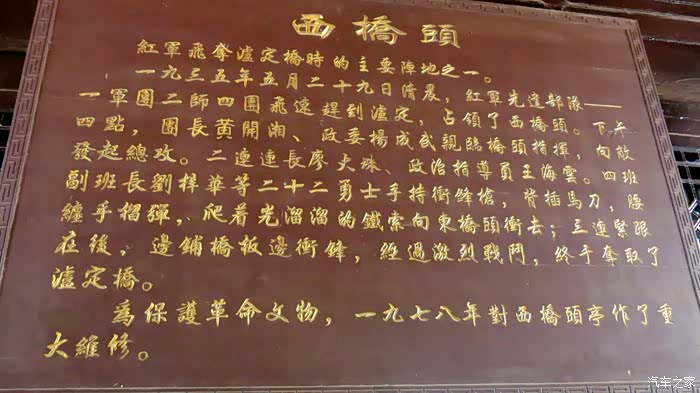 西橋頭
紅軍飛奪瀘定橋時的主要陣地之一。
一九三五年五月二十九日清晨，紅軍先遣部隊——
一軍團二師四團飛速趕到瀘定，占領了西橋頭。下午
四點，團長黃開湘、政委楊成武親臨橋頭指揮，向敵
發起總攻。二連連長廖大珠、政治指導員王海雲。四班
副班長劉梓華等二十二勇士手持衝鋒槍，背插馬刀，腰
纏手榴彈，爬着光溜溜的鐵索向東橋頭衝去；三連緊跟
在後，邊鋪橋板邊衝鋒，經過激烈戰鬥，終于奪取了
瀘定橋。
為保護革命文物，一九七八年對西橋頭亭作了重
大維修。
汽车之家